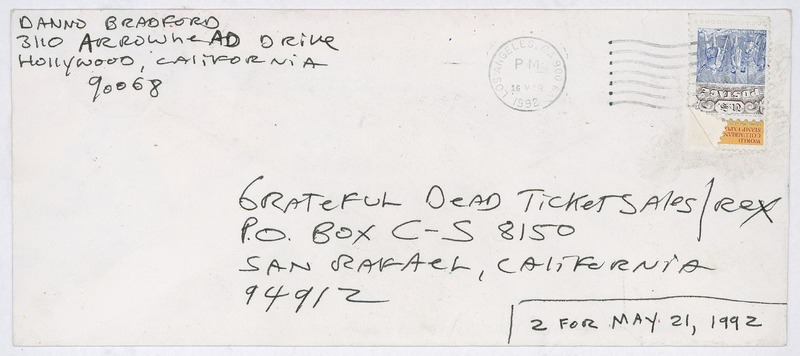 DANNO BRADFORD
3110 ARROWHEAD DRIVE
HOLLYWOOD, CALIFORNIA
90068
LOS ANGELES, CA 900
PM
16 MAR
1992
U.S. POSTAGE
WORLD
COLUMBIAN
STAMP EXPO
GRATEFUL DEAD TICKET SALES/REX
P.O. BOX C-S 8150
SAN RAFAEL, CALIFORNIA
94912
2 FOR MAY 21, 1992